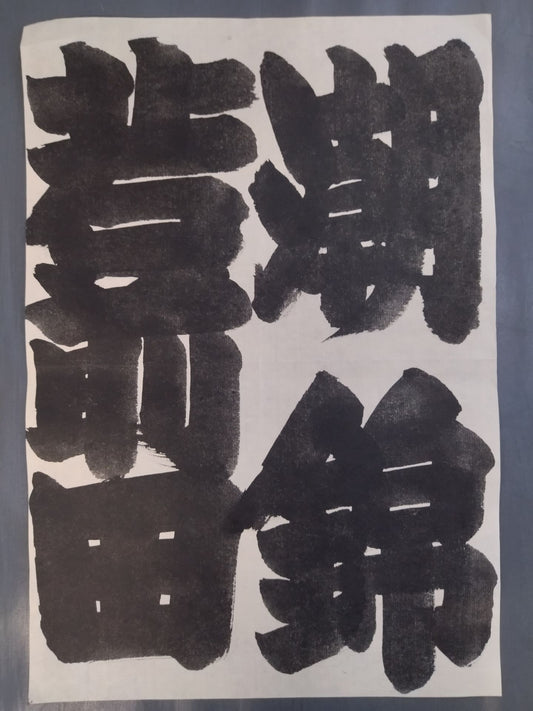 潮錦
前田